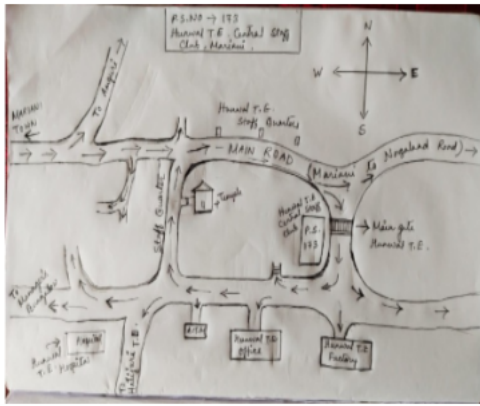 P.S. NO → 173
Huwal T.E. Central Staff
Club, Mariani.
N
W
E
S
MARIANI
TOWN
To
Huwal T.E.
Staff Quarters
MAIN ROAD
(Mariani to Nagaland Road) →
Staff Quarter
Temple
Huwal T.E.
Central Staff
Club
P.S.
173
Main gate
Huwal T.E.
To
Hospital
Huwal
T.E. Hospital
To
T.E.
Huwal T.E
office
Huwal T.E
Factory